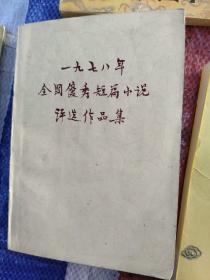 一九七八年
全国优秀短篇小说
评选作品集